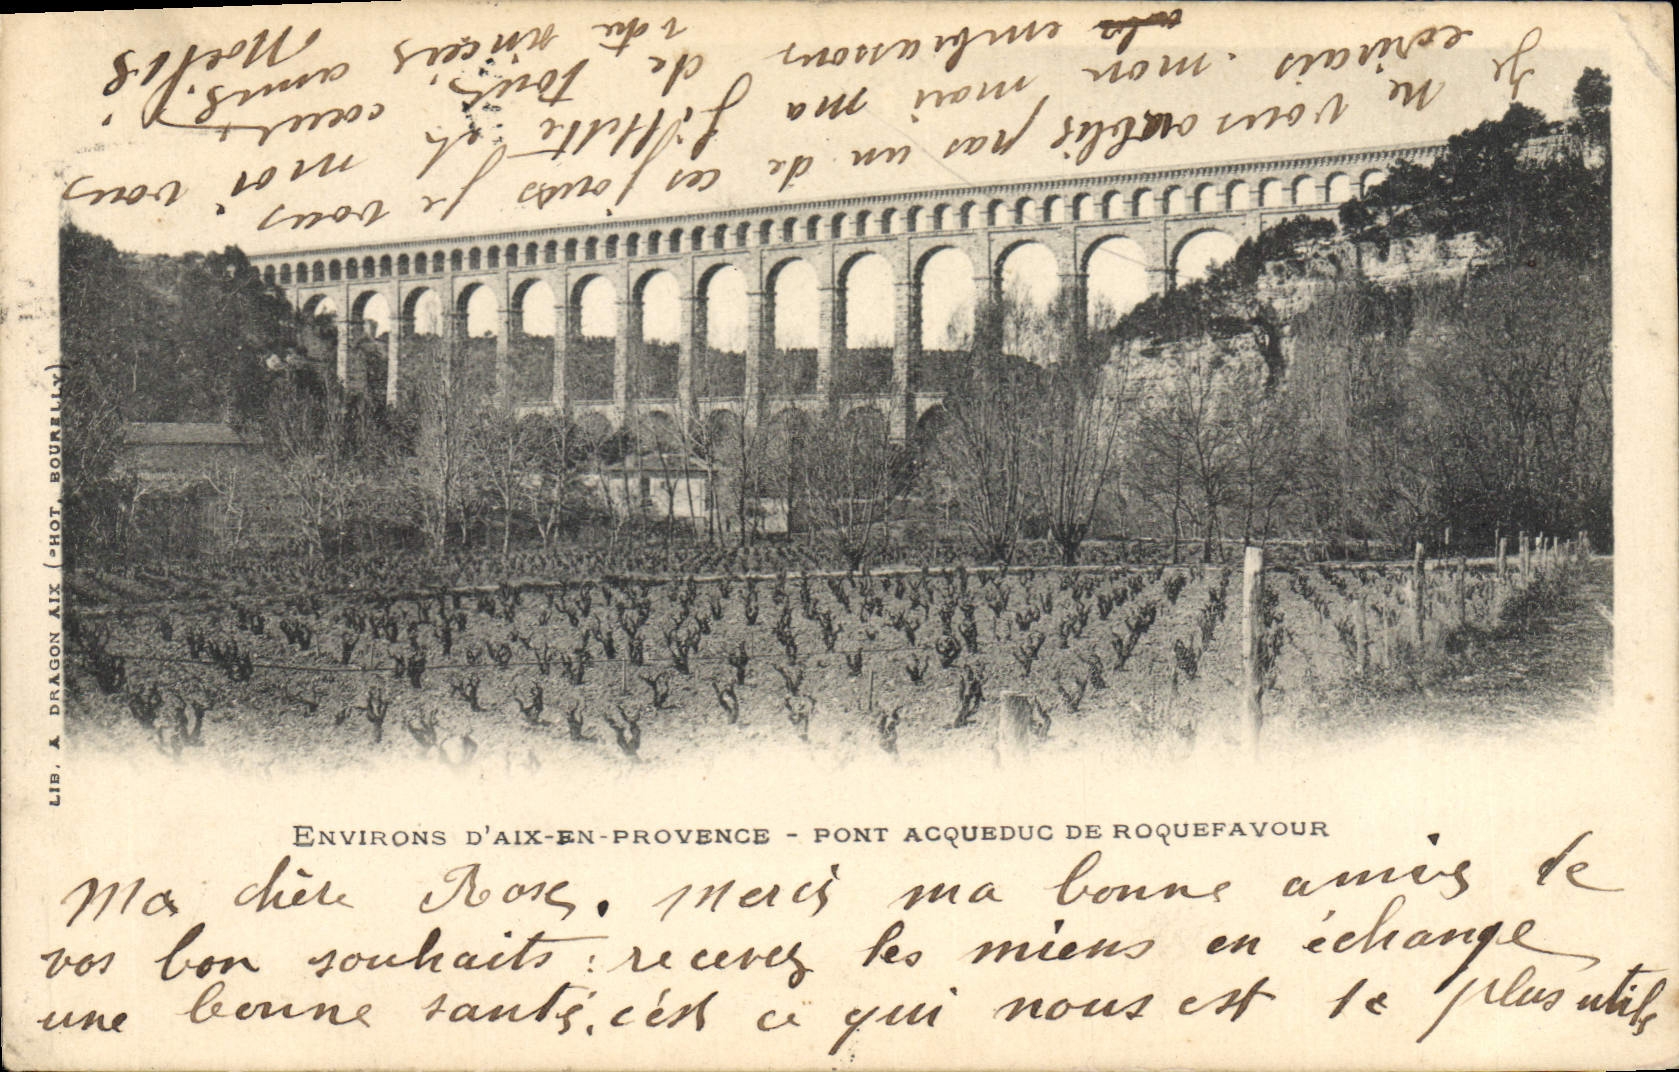 Je ne vous oublie pas un de ces jours je vous
ecrirais. mon mari ma fillette et moi vous
embrassons de tout cœur
votre sincère amie.
Noelie
LIB. A DRAGON AIX (PHOT. BOURELLY)
ENVIRONS D'AIX-EN-PROVENCE - PONT ACQUEDUC DE ROQUEFAVOUR
Ma chère Rose. Merci ma bonne amie de
vos bon souhaits: recevez les miens en échange
une bonne santé, c'est ce qui nous est le plus utile